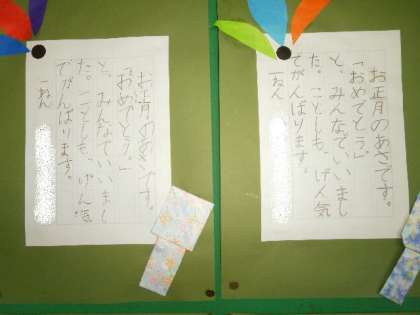 お正月のあさです。
「おめでとう。」
と、みんなでいいまし
た。ことしも、げん気
でがんばります。
一ねん
お正月のあさです。
「おめでとう。」
と、みんなでいいまし
た。ことしも、げん気
でがんばります。
一ねん